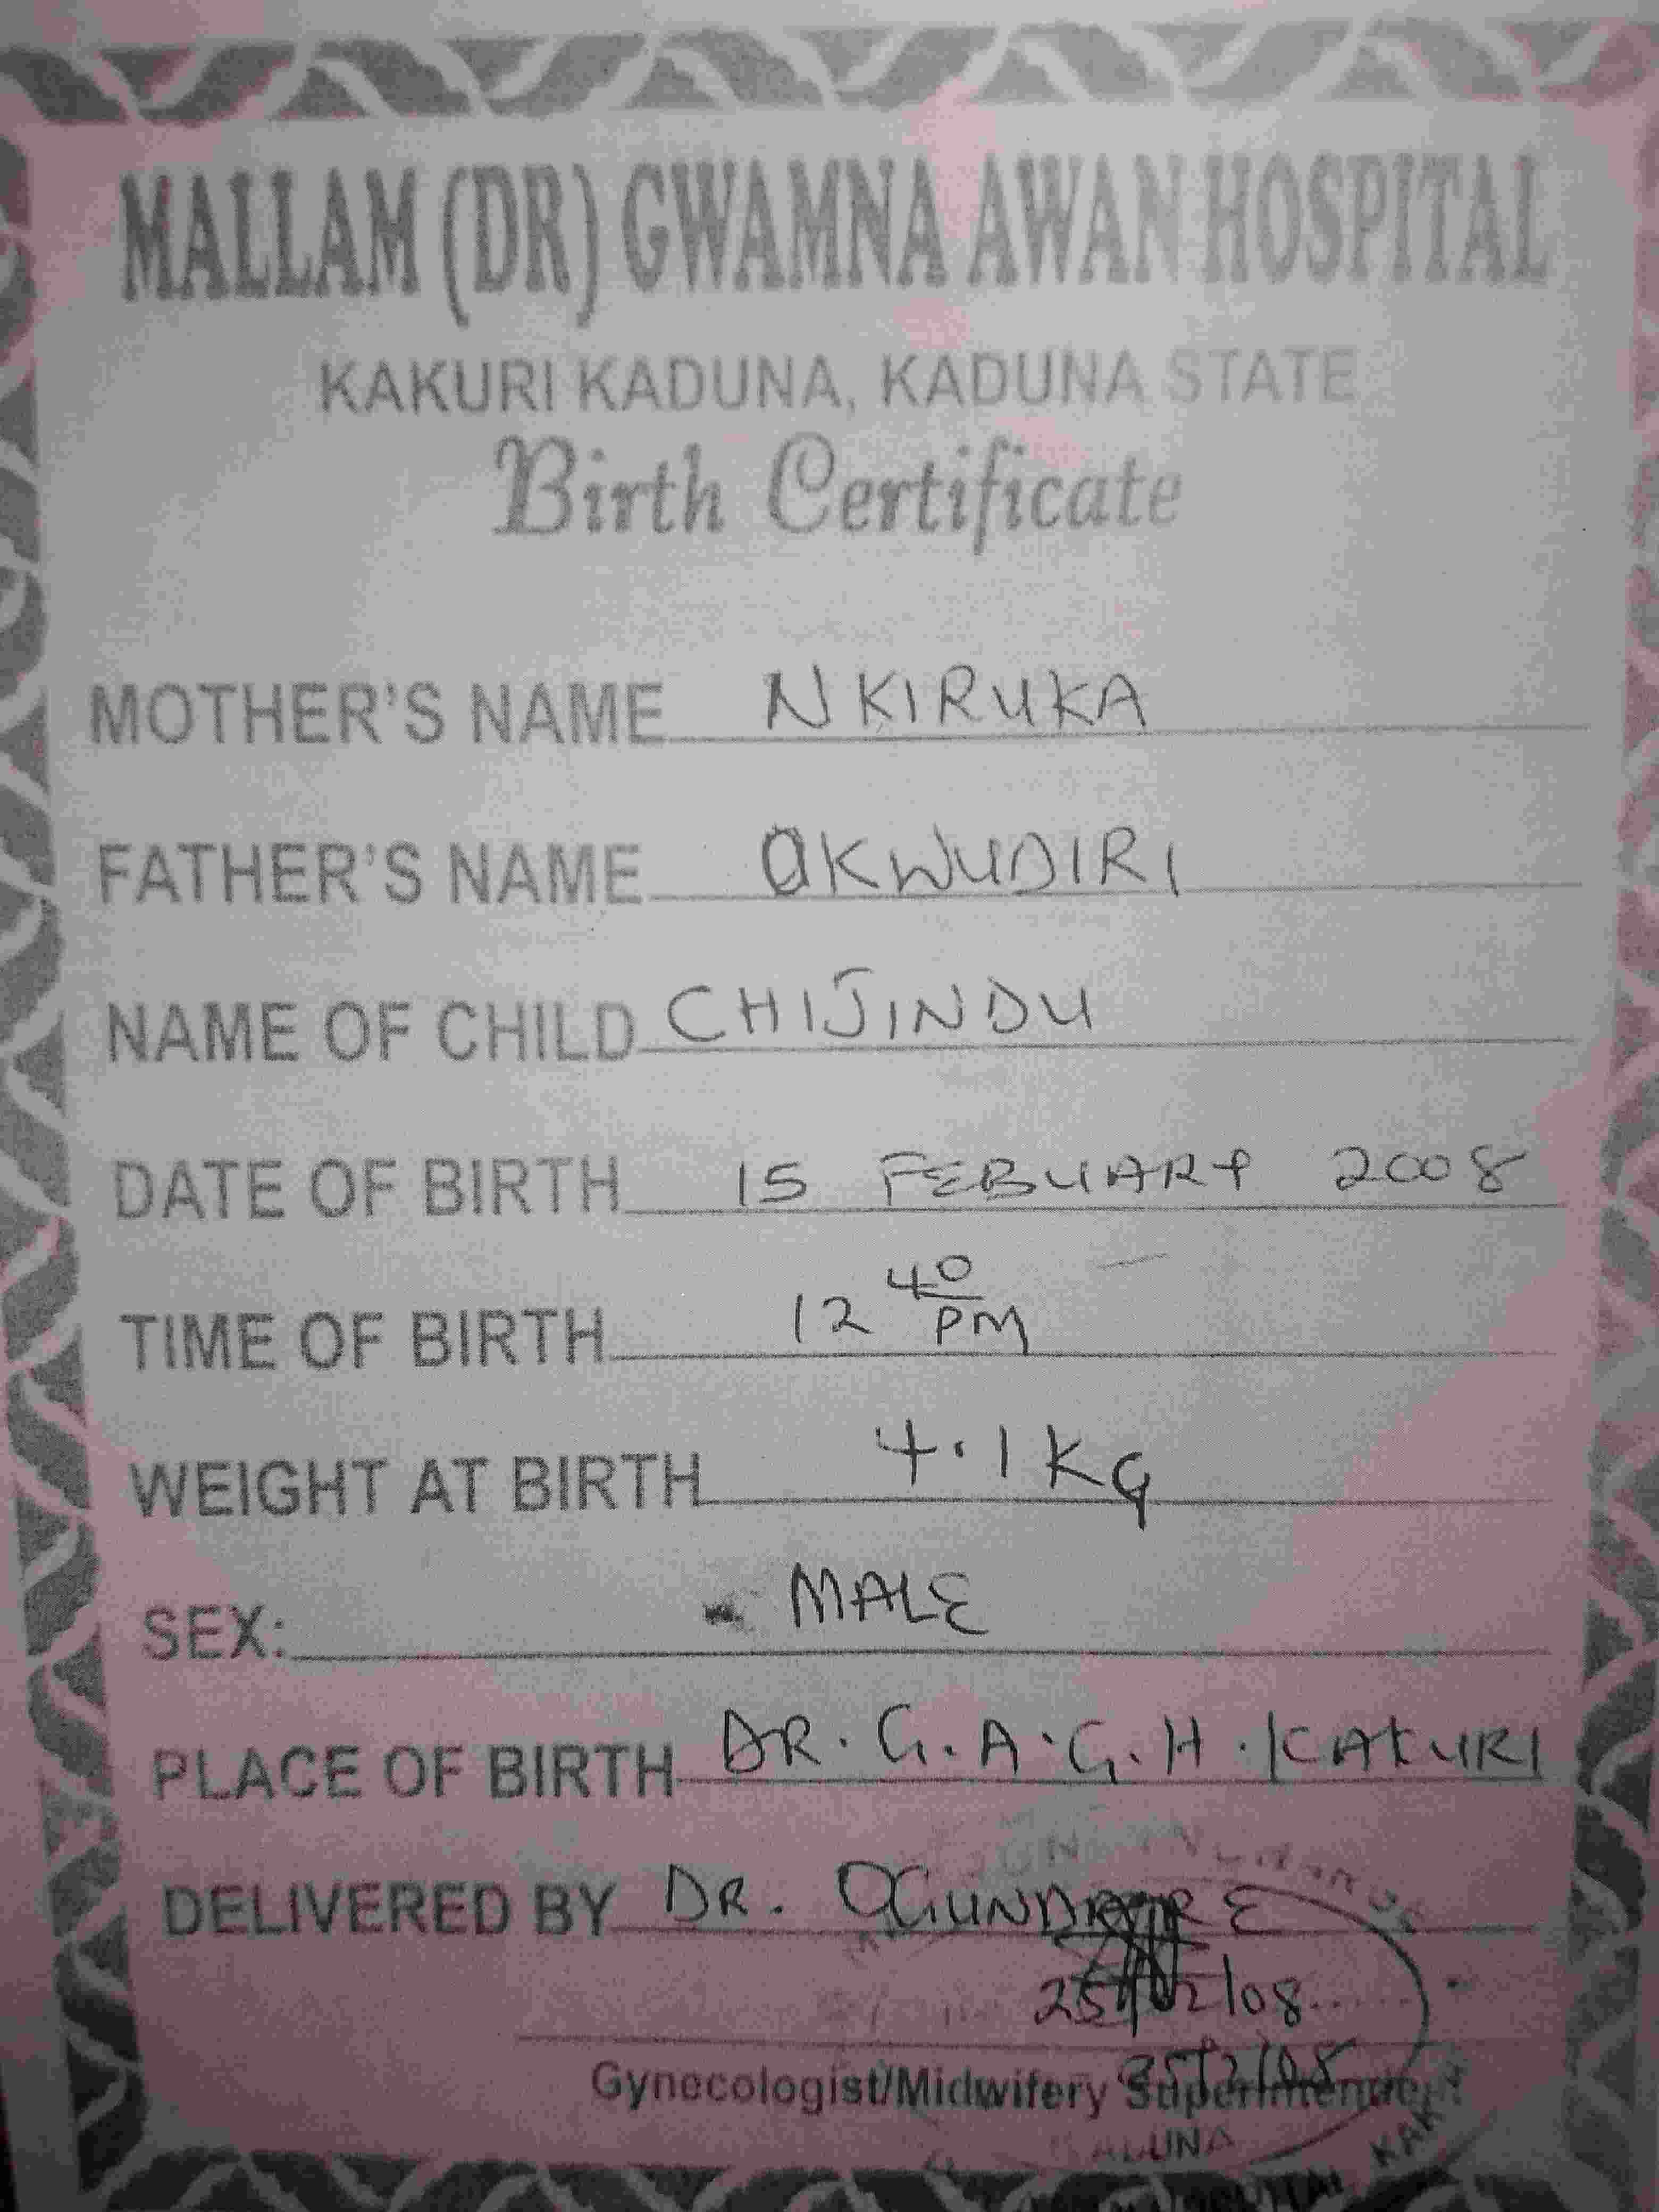 MALLAM (DR) GWAMNA AWAN HOSPITAL
KAKURI KADUNA, KADUNA STATE
Birth Certificate
MOTHER'S NAME NKIRUKA
FATHER'S NAME OKWUDIRI
NAME OF CHILD CHIJINDU
DATE OF BIRTH 15 FEBUARY 2008
TIME OF BIRTH 12 40 PM
WEIGHT AT BIRTH 4.1KG
SEX: MALE
PLACE OF BIRTH DR. G.A.G.H. KAKURI
DELIVERED BY DR. OGUNDARE
25/02/08
Gynecologist/Midwifery Superintendent